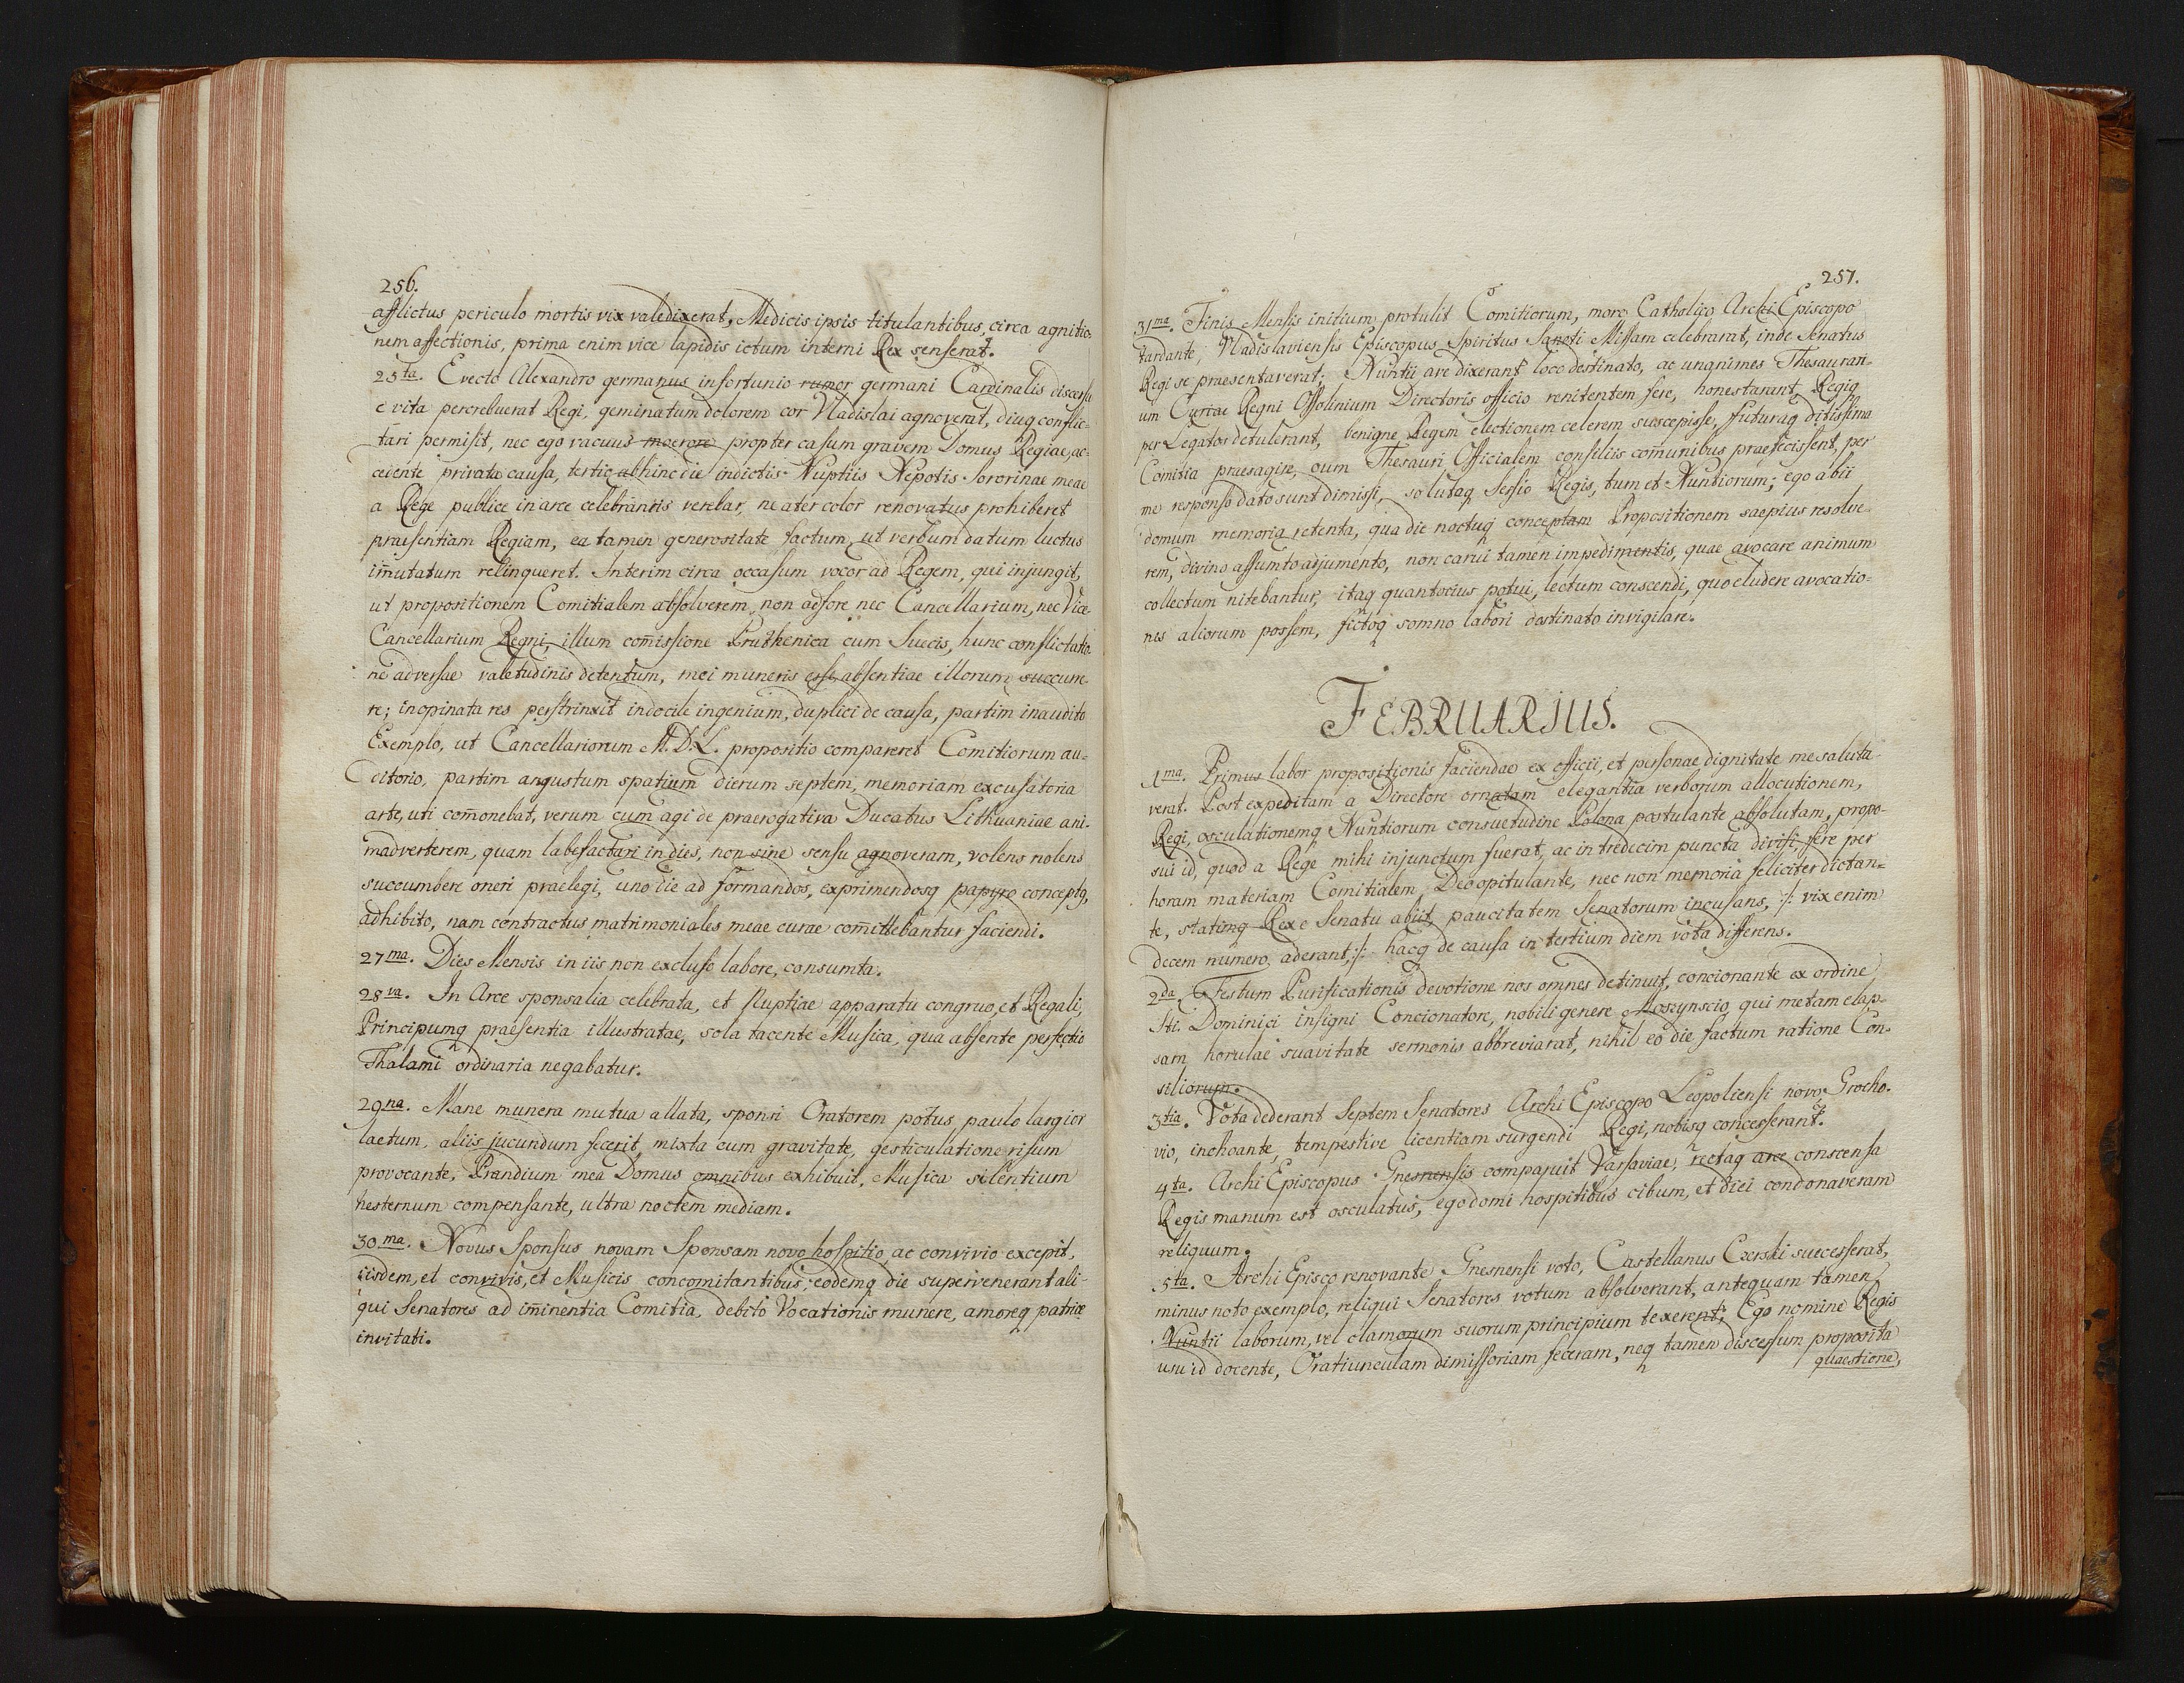 256.
afflictus periculo mortis vix valedixerat, Medicis ipsis titulantibus, circa agnitio-
nem affectionis, prima enim vice lapidis ictum interni Rex senserat.
25ta. Evecto Alexandro germanus infortunio rumor germani Cardinalis discessu
e vita percrebuerat Regi, geminatum dolorem cor Vladislai agnoverat, diuq conflic-
tari permisit, nec ego vacuus moerore propter casum gravem Domus Regiae, ac-
cedente privata causa, tertio abhinc die indictis Nuptiis Nepotis Sororinae meae
a Rege publice in arce celebrantis verebar, ne ater color renovatus prohiberet
praesentiam Regiam, ea tamen generositate factum, ut verbum datum luctus
im̄utatum relinqueret. Interim circa occasum vocor ad Regem, qui injungit,
ut propositionem Comitialem absolverem, non adfore nec Cancellarium, nec Vice-
Cancellarium Regni, illum com̄issione Pruthenica cum Suecis, hunc conflictatio-
ne adversae valetudinis detentum, mei muneris esse, absentiae illorum succurre-
re; inopinata res perstrinxit indocile ingenium, duplici de causa, partim inaudito
Exemplo, ut Cancellariorum M. D. L. propositio compareret Comitiorum au-
ditorio, partim angustum spatium dierum septem, memoriam excusatoria
arte, uti com̄onebat, verum cum agi de praerogativa Ducatus Lithuaniae ani-
madverterem, quam labefactari in dies, non sine sensu agnoveram, volens nolens
succumbere oneri praelegi, uno die ad formandos, exprimendosq papyro conceptq,
adhibito, nam contractus matrimoniales meae curae com̄ittebantur faciendi.
27ma. Dies Mensis in iis non excluso labore, consumta.
28va. In Arce sponsalia celebrata, et Nuptiae apparatu congruo, et Regali,
Principumq praesentia illustratae, sola tacente Musica, qua absente perfectio
Thalami ordinaria negabatur.
29na. Mane munera mutua allata, sponsi Oratorem potus, paulo largior
laetum, aliis jucundum fecerit, mixta cum gravitate, gesticulatione risum
provocante, Prandium mea Domus omnibus exhibuit, Musica silentium
hesternum compensante, ultra noctem mediam.
30ma. Novus Sponsus novam Sponsam novo hospitio, ac convivio excepit,
iisdem, et convivis, et Musicis concomitantibus; eodemq die supervenerant ali-
qui Senatores ad im̄inentia Comitia, debito Vocationis munere, amoreq patriae
invitati.
257.
31ma. Finis Mensis initium protulit Comitiorum, more Catholico Archi Episcopo
tardante, Vladislaviensis Episcopus Spiritus Sancti Missam celebrarat, inde Senatus
Regi se praesentaverat. Nuntii are dixerant loco destinato, ac unanimes Thesaurari-
um Curiae Regni Ossolinium Directoris officio renitentem fere, honestarant, Regiq
per Legatos detulerant, benigne Regem electionem celerem suscepisse, futuraq ditissima
Comitia praesagire, cum Thesauri Officialem consiliis com̄unibus praefecissent, per
me responso dato sunt dimissi, solutaq Sessio Regis, tum et Nuntiorum; ego abii
domum memoria retenta, qua die noctuq conceptam Propositionem saepius resolve-
rem, divino assumto adjumento, non carui tamen impedimentis, quae avocare animum
collectum nitebantur, itaq quantocius potui, lectum conscendi, quo eludere avocatio-
nes aliorum possem, fictoq somno labori destinato invigilare.
FEBRUARIUS.
1ma. Primus labor propositionis faciendae ex officii, et personae dignitate me saluta-
verat. Post expeditam a Directore ornatam elegantia verborum allocutionem,
Regi, osculationemq Nuntiorum consuetudine Polona postulante absolutam, propo-
sui id, quod a Rege mihi injunctum fuerat, ac in tredecim puncta divisi, fere per
horam materiam Comitialem, Deo opitulante, nec non memoria feliciter dictan-
te, statimq Rex e Senatu abiit, paucitatem Senatorum incusans, :/: vix enim
decem numero, aderant, :/: hacq de causa in tertium diem vota differens.
2da. Festum Purificationis devotione nos omnes detinuit, concionante ex ordine
Sti. Dominici insigni Concionatore, nobili genere Moszynscio, qui metam elap-
sam horulae suavitate sermonis abbreviarat, nihil eo die factum ratione Con-
siliorum.
3tia. Vota dederant Septem Senatores Archi Episcopo Leopoliensi novo Grocho-
vio, inchoante, tempestive licentiam surgendi Regi, nobisq concesserant.
4ta. Archi Episcopus Gnesnensis comparuit Varsaviae, rectaq arce conscensa
Regis manum est osculatus, ego domi hospitibus cibum, et diei condonaveram
reliquum.
5ta. Archi Episco renovante Gnesnensi voto, Castellanus Czerski successerat,
minus noto exemplo, reliqui Senatores votum absolverant, antequam tamen
Nuntii laborum, vel clamorum suorum principium texerent; Ego nomine Regis
usu id docente, Oratiunculam dimissoriam feceram, neq tamen discessum proposita
quaestione,